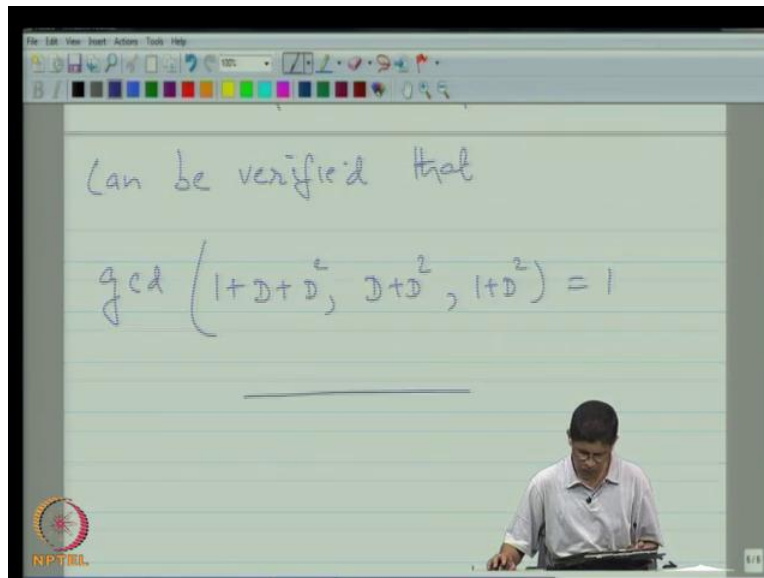 File Edit View Insert Actions Tools Help
100%
B I
Can be verified that
gcd (1+D+D², D+D², 1+D²) = 1
NPTEL
6/6